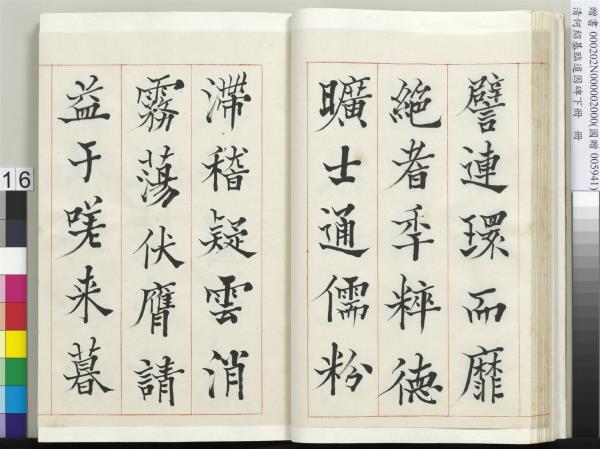 譬連環而靡
絕耆年粹德
曠士通儒粉
滯稽疑雲消
霧蕩伏膺請
益于嗟来暮
贈書 000202N000002000(國贈 005941)
清何紹基臨道因碑下冊 冊
16